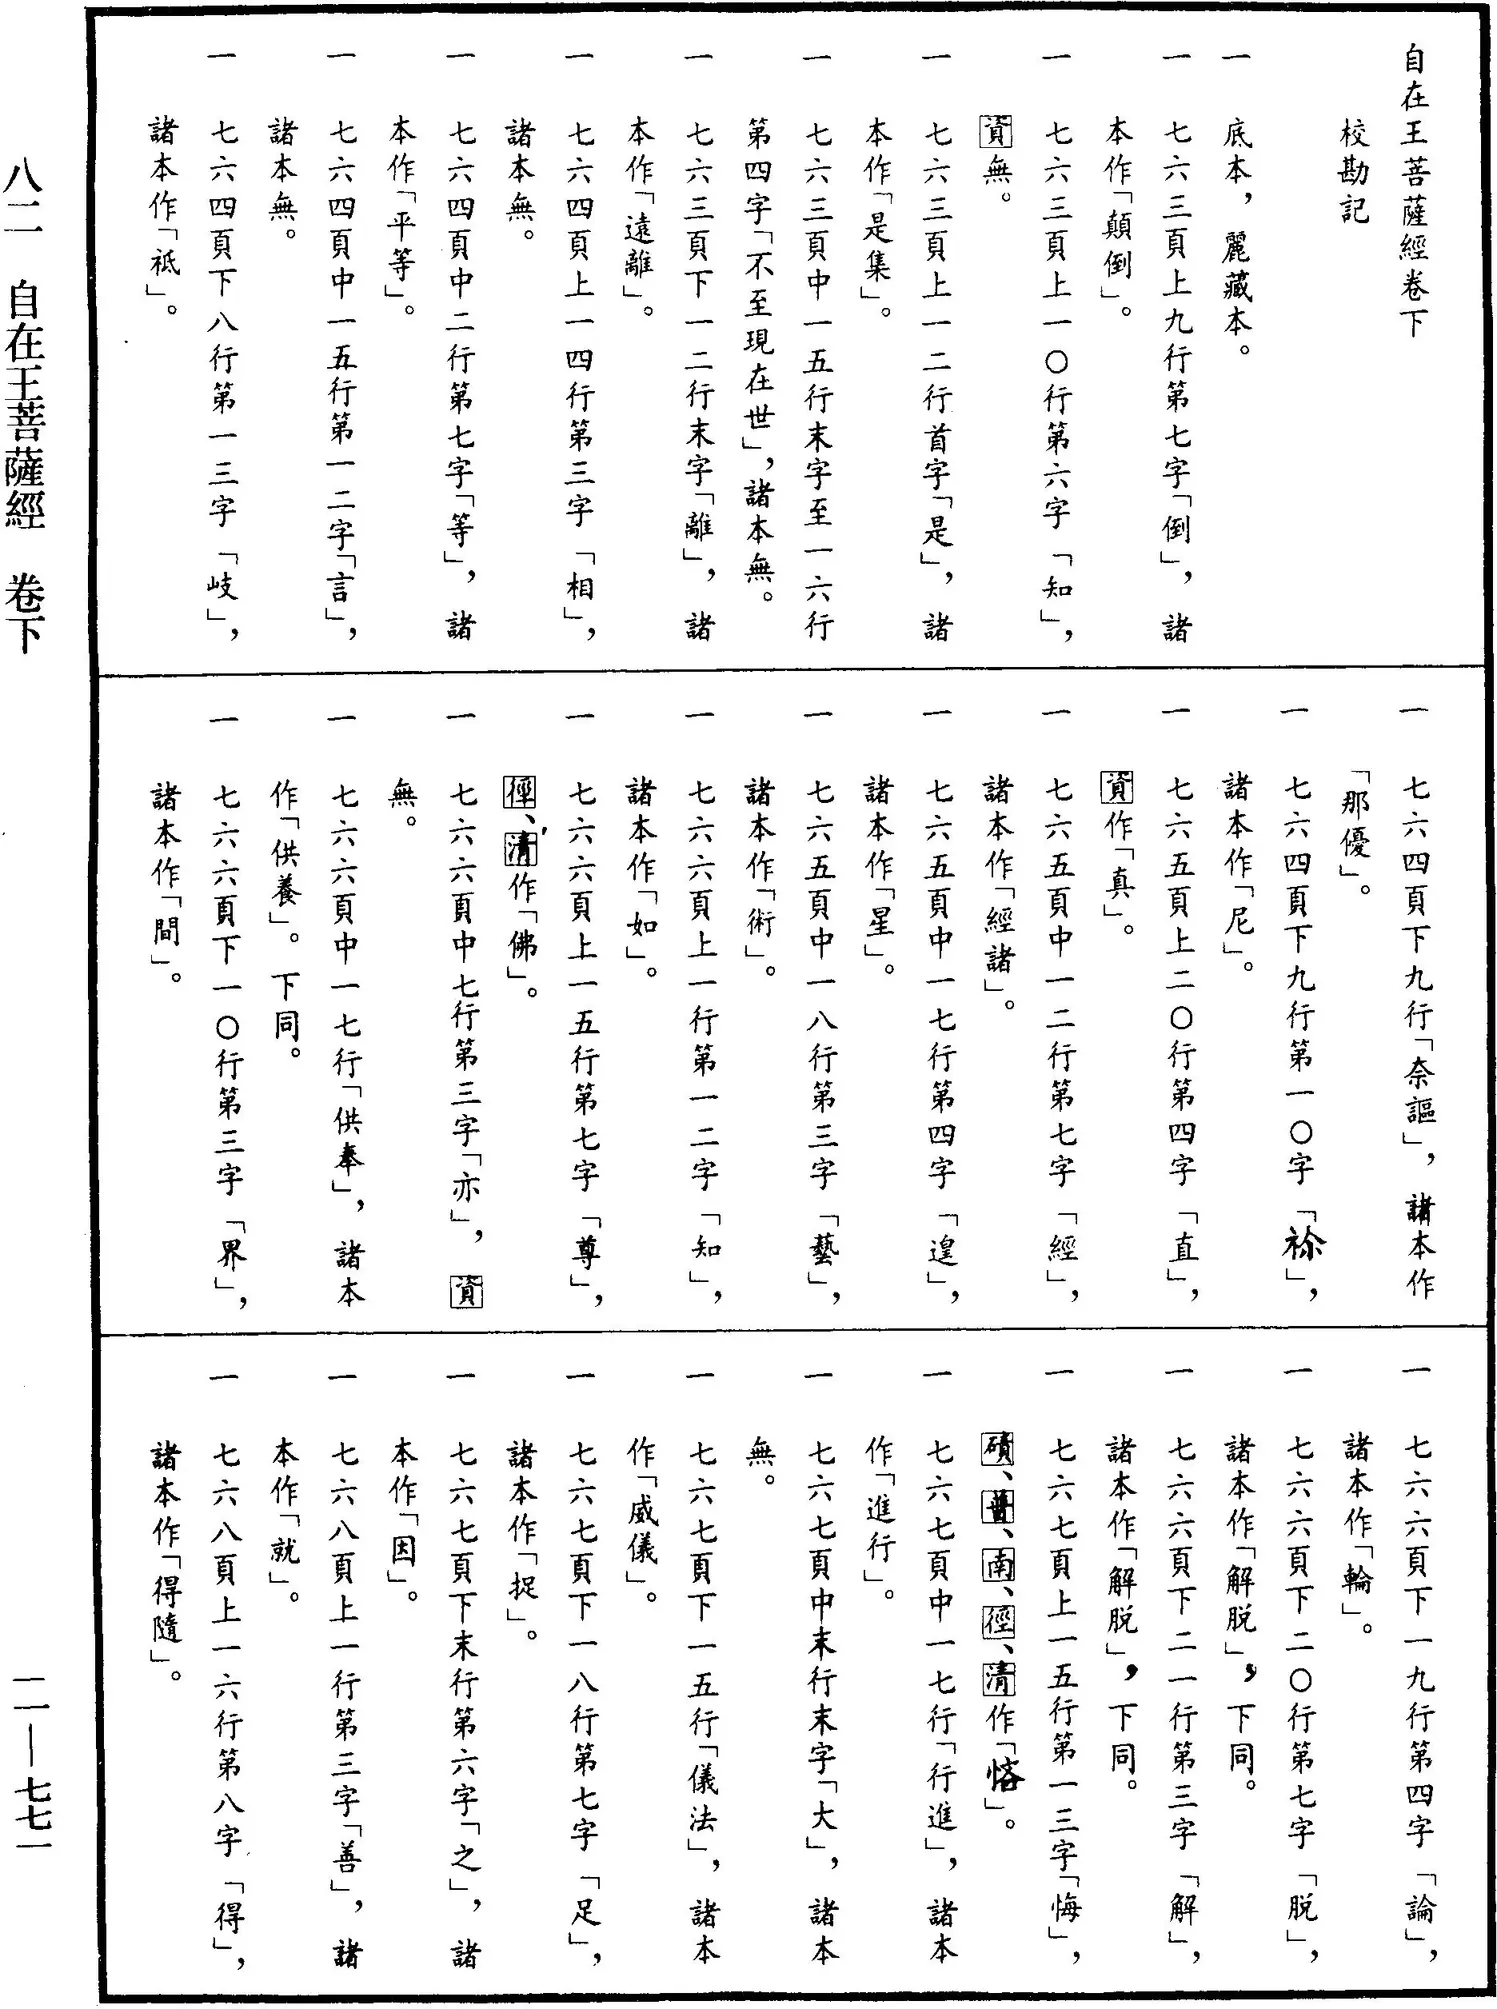 自在王菩薩經卷下
校勘記
一 底本，麗藏本。
一 七六三頁上九行第七字「倒」，諸
本作「顛倒」。
一 七六三頁上一〇行第六字「知」，
資無。
一 七六三頁上一二行首字「是」，諸
本作「是集」。
一 七六三頁中一五行末字至一六行
第四字「不至現在世」，諸本無。
一 七六三頁下一二行末字「離」，諸
本作「遠離」。
一 七六四頁上一四行第三字「相」，
諸本無。
一 七六四頁中二行第七字「等」，諸
本作「平等」。
一 七六四頁中一五行第一二字「言」，
諸本無。
一 七六四頁下八行第一三字「岐」，
諸本作「祇」。
一 七六四頁下九行「奈謳」，諸本作
「那優」。
一 七六四頁下九行第一〇字「祢」，
諸本作「尼」。
一 七六五頁上二〇行第四字「直」，
資作「真」。
一 七六五頁中一二行第七字「經」，
諸本作「經諸」。
一 七六五頁中一七行第四字「遑」，
諸本作「星」。
一 七六五頁中一八行第三字「藝」，
諸本作「術」。
一 七六六頁上一行第一二字「知」，
諸本作「如」。
一 七六六頁上一五行第七字「尊」，
徑、清作「佛」。
一 七六六頁中七行第三字「亦」，資
無。
一 七六六頁中一七行「供奉」，諸本
作「供養」。下同。
一 七六六頁下一〇行第三字「界」，
諸本作「間」。
一 七六六頁下一九行第四字「論」，
諸本作「輪」。
一 七六六頁下二〇行第七字「脱」，
諸本作「解脱」，下同。
一 七六六頁下二一行第三字「解」，
諸本作「解脱」，下同。
一 七六七頁上一五行第一三字「悔」，
磧、普、南、徑、清作「悋」。
一 七六七頁中一七行「行進」，諸本
作「進行」。
一 七六七頁中末行末字「大」，諸本
無。
一 七六七頁下一五行「儀法」，諸本
作「威儀」。
一 七六七頁下一八行第七字「足」，
諸本作「捉」。
一 七六七頁下末行第六字「之」，諸
本作「因」。
一 七六八頁上一行第三字「善」，諸
本作「就」。
一 七六八頁上一六行第八字「得」，
諸本作「得隨」。
八二 自在王菩薩經 卷下
一一—七七一